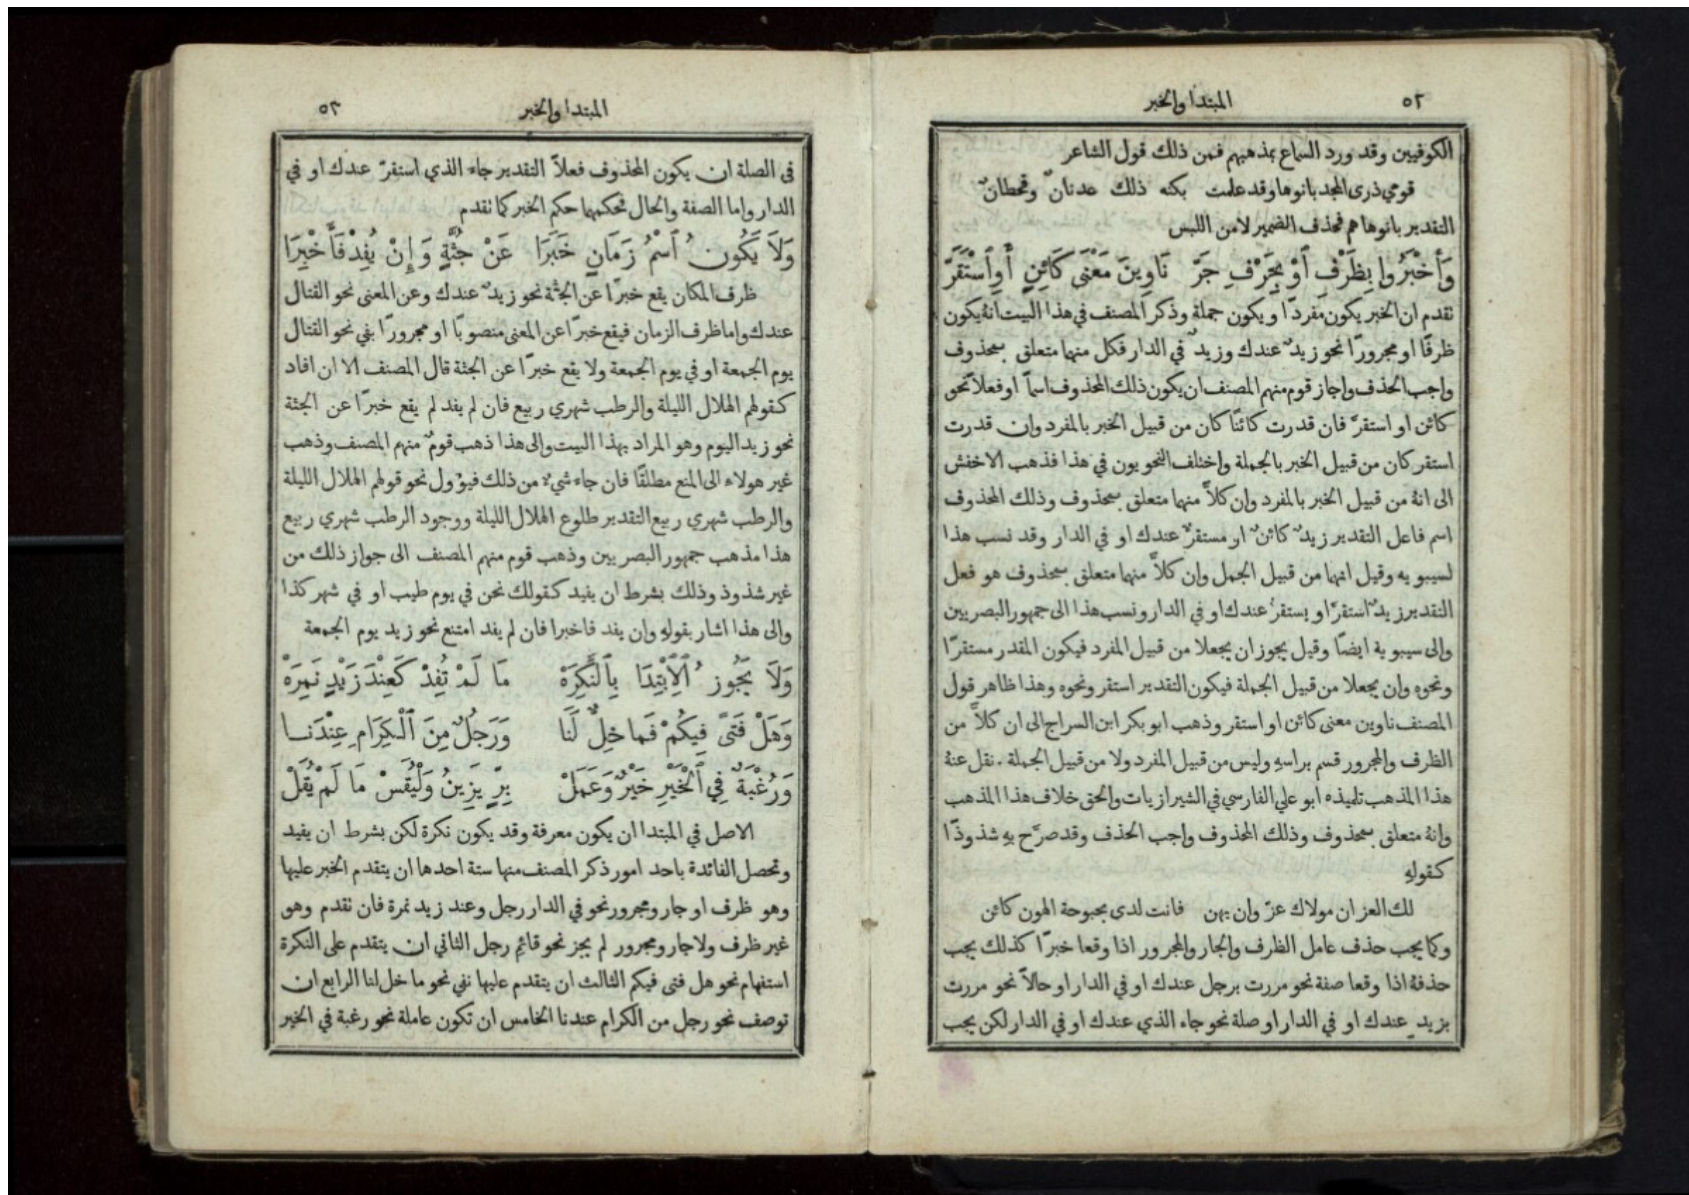 ٥٢
المبتدا والخبر
الكوفيين وقد ورد السماع بمذهبهم فمن ذلك قول الشاعر
قومي ذرى المجد بانوها وقد علمت بكنه ذلك عدنانٌ وقحطانٌ
التقدير بانوها هم فحذف الضمير لامن اللبس
وَأَخْبَرُوا بِظَرْفٍ أَوْ بِحَرْفِ جَرّْ نَاوِينَ مَعْنَى كَائِنٍ أَوِ ٱسْتَقَرّْ
تقدم ان الخبر يكون مفردًا ويكون جملة وذكر المصنف في هذا البيت انهُ يكون
ظرفًا او مجرورًا نحو زيدٌ عندك وزيدٌ في الدار فكل منهما متعلق بمحذوف
واجب الحذف واجاز قوم منهم المصنف ان يكون ذلك المحذوف اسمًا او فعلاً نحو
كائن او استقرَّ فان قدرت كائنًا كان من قبيل الخبر بالمفرد وان قدرت
استقر كان من قبيل الخبر بالجملة واختلف النحويون في هذا فذهب الاخفش
الى انهُ من قبيل الخبر بالمفرد وان كلاًّ منهما متعلق بمحذوف وذلك المحذوف
اسم فاعل التقدير زيدٌ كائنٌ او مستقرٌّ عندك او في الدار وقد نسب هذا
لسيبويه وقيل انهما من قبيل الجمل وان كلاًّ منهما متعلق بمحذوف هو فعل
التقدير زيدٌ استقرَّ او يستقرُّ عندك او في الدار ونسب هذا الى جمهور البصريين
والى سيبوية ايضًا وقيل يجوز ان يجعلا من قبيل المفرد فيكون المقدر مستقرًّا
ونحوه وان يجعلا من قبيل الجملة فيكون التقدير استقر ونحوه وهذا ظاهر قول
المصنف ناوين معنى كائن او استقر وذهب ابو بكر ابن السراج الى ان كلاًّ من
الظرف والمجرور قسم براسهِ وليس من قبيل المفرد ولا من قبيل الجملة . نقل عنهُ
هذا المذهب تلميذه ابو علي الفارسي في الشيرازيات والحق خلاف هذا المذهب
وانهُ متعلق بمحذوف وذلك المحذوف واجب الحذف وقد صرَّح بهِ شذوذًا
كقولهِ
لك العز ان مولاك عزّ وان يهن فانت لدى بحبوحة الهون كائن
وكما يجب حذف عامل الظرف والجار والمجرور اذا وقعا خبرًا كذلك يجب
حذفهُ اذا وقعا صفة نحو مررت برجل عندك او في الدار او حالاً نحو مررت
بزيدٍ عندك او في الدار او صلة نحو جاء الذي عندك او في الدار لكن يجب
المبتدا والخبر
٥٣
في الصلة ان يكون المحذوف فعلاً التقدير جاء الذي استقرّ عندك او في
الدار واما الصفة والحال فحكمهما حكم الخبر كما تقدم
وَلاَ يَكُونُ ٱسْمُ زَمَانٍ خَبَرَا عَنْ جُثَّةٍ وَإِنْ يُفِدْ فَأَخْبِرَا
ظرف المكان يقع خبرًا عن الجثة نحو زيدٌ عندك وعن المعنى نحو القتال
عندك واما ظرف الزمان فيقع خبرًا عن المعنى منصوبًا او مجرورًا بفي نحو القتال
يوم الجمعة او في يوم الجمعة ولا يقع خبرًا عن الجثة قال المصنف الا ان افاد
كقولهم الهلال الليلة والرطب شهري ربيع فان لم يفد لم يقع خبرًا عن الجثة
نحو زيد اليوم وهو المراد بهذا البيت والى هذا ذهب قومٌ منهم المصنف وذهب
غير هولاء الى المنع مطلقًا فان جاء شيءٌ من ذلك فيؤول نحو قولهم الهلال الليلة
والرطب شهري ربيع التقدير طلوع الهلال الليلة ووجود الرطب شهري ربيع
هذا مذهب جمهور البصريين وذهب قوم منهم المصنف الى جواز ذلك من
غير شذوذ وذلك بشرط ان يفيد كقولك نحن في يوم طيب او في شهر كذا
والى هذا اشار بقولهِ وان يفد فاخبرا فان لم يفد امتنع نحو زيد يوم الجمعة
وَلاَ يَجُوزُ ٱلِٱبْتِدَا بِٱلنَّكِرَهْ مَا لَمْ تُفِدْ كَعِنْدَ زَيْدٍ نَمِرَهْ
وَهَلْ فَتًى فِيكُمْ فَمَا خِلٌّ لَنَا وَرَجُلٌ مِنَ ٱلْكِرَامِ عِنْدَنَا
وَرُغْبَةٌ فِي ٱلْخَيْرِ خَيْرٌ وَعَمَلْ بِرٍّ يَزِينُ وَلْيُقَسْ مَا لَمْ يُقَلْ
الاصل في المبتدا ان يكون معرفة وقد يكون نكرة لكن بشرط ان يفيد
وتحصل الفائدة باحد امور ذكر المصنف منها ستة احدها ان يتقدم الخبر عليها
وهو ظرف او جار ومجرور نحو في الدار رجل وعند زيد نمرة فان تقدم وهو
غير ظرف ولا جار ومجرور لم يجز نحو قائم رجل الثاني ان يتقدم على النكرة
استفهام نحو هل فتى فيكم الثالث ان يتقدم عليها نفي نحو ما خل لنا الرابع ان
توصف نحو رجل من الكرام عندنا الخامس ان تكون عاملة نحو رغبة في الخير